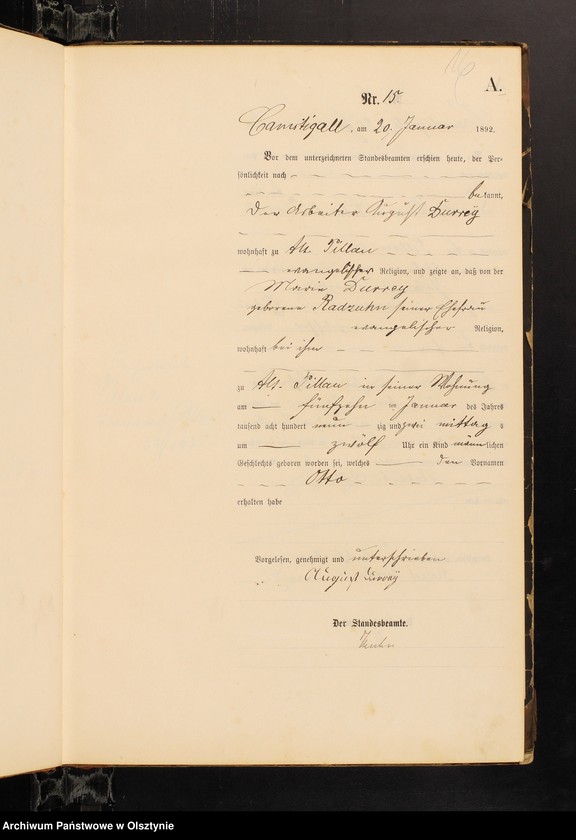 16
A.
Nr. 15.
Camstigall, am 20. Januar 1892.
Vor dem unterzeichneten Standesbeamten erschien heute, der Per-
sönlichkeit nach
bekannt,
der Arbeiter August Durrey
wohnhaft zu Alt. Pillau
evangelischer Religion, und zeigte an, daß von der
Marie Durrey
geborene Radzuhn seiner Ehefrau
evangelischer Religion,
wohnhaft bei ihm
zu Alt. Pillau in seiner Wohnung
am fünfzehn ten Januar des Jahres
tausend acht hundert neunzig und zwei mittags
um zwölf Uhr ein Kind männlichen
Geschlechts geboren worden sei, welches den Vornamen
Otto
erhalten habe
Vorgelesen, genehmigt und unterschrieben
August Durrey
Der Standesbeamte.
Archiwum Państwowe w Olsztynie